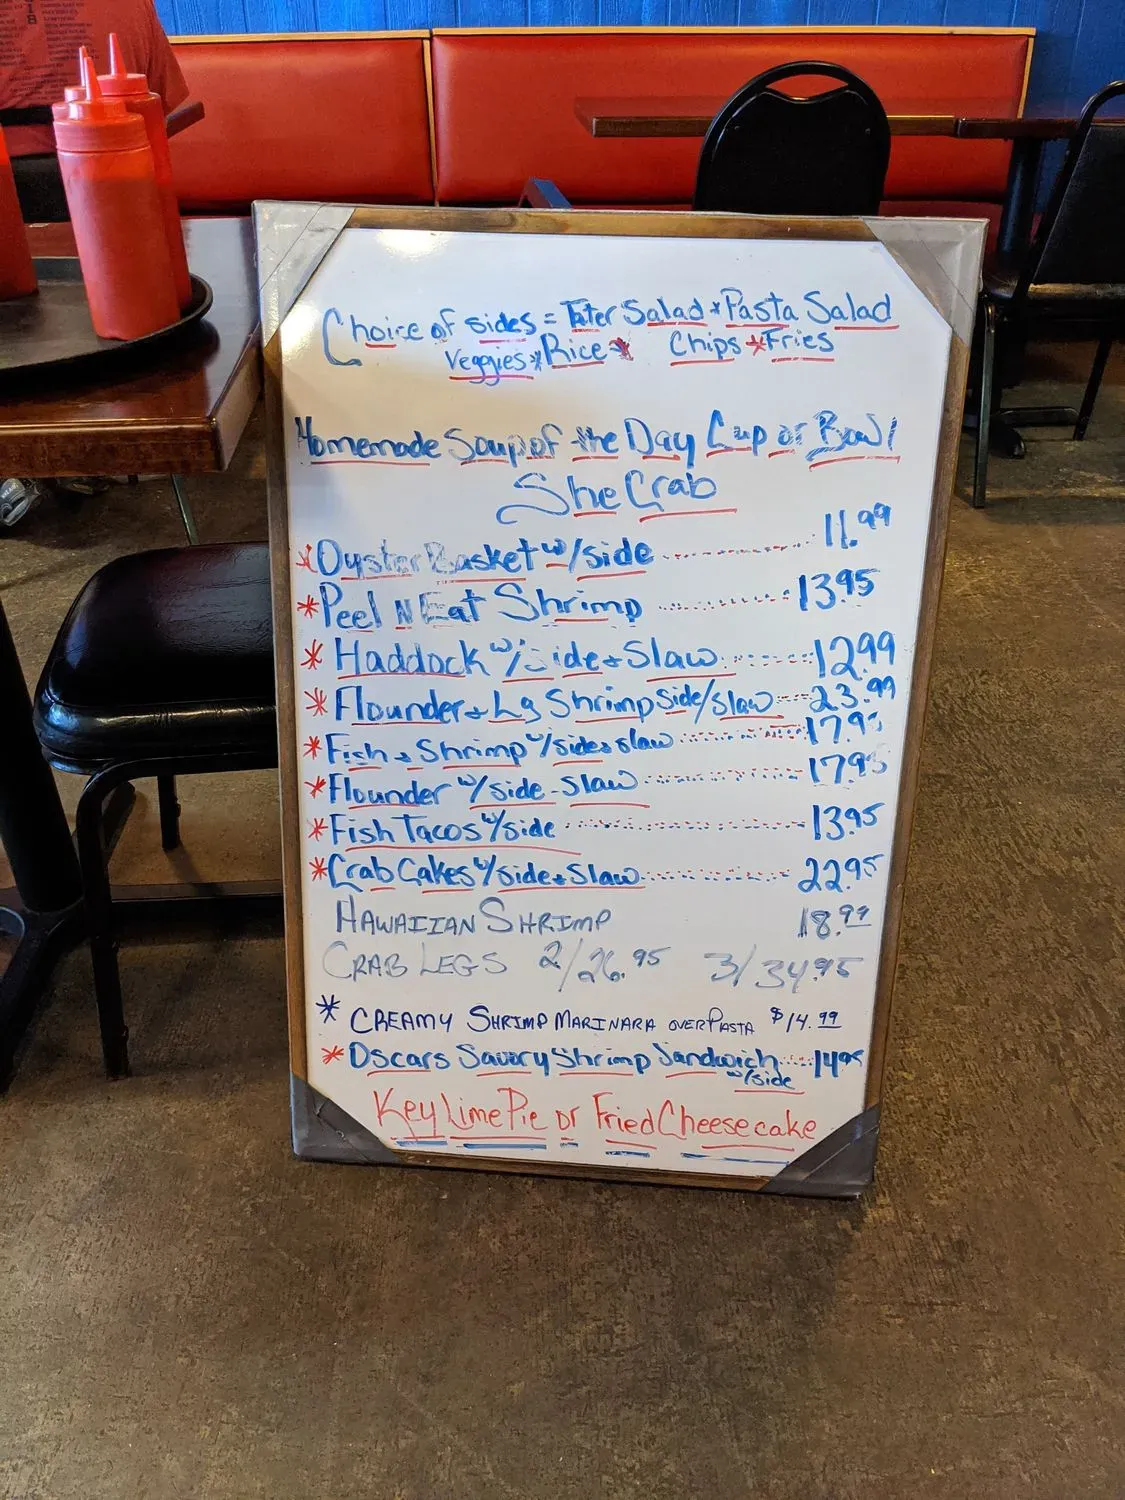 Choice of sides = Tater Salad * Pasta Salad
Veggies * Rice * Chips * Fries
Homemade Soup of the Day Cup or Bowl
She Crab
* Oyster Basket w/side 11.99
* Peel N Eat Shrimp 13.95
* Haddock w/side + Slaw 12.99
* Flounder + Lg Shrimp side/slaw 23.99
* Fish + Shrimp w/side + slaw 17.95
* Flounder w/side - Slaw 17.95
* Fish Tacos w/side 13.95
* Crab Cakes w/side + Slaw 22.95
HAWAIIAN SHRIMP 18.99
CRAB LEGS 2/26.95 3/34.95
* CREAMY SHRIMP MARINARA OVER PASTA $14.99
* Oscars Savory Shrimp Sandwich 14.95
w/side
Key Lime Pie or Fried Cheesecake